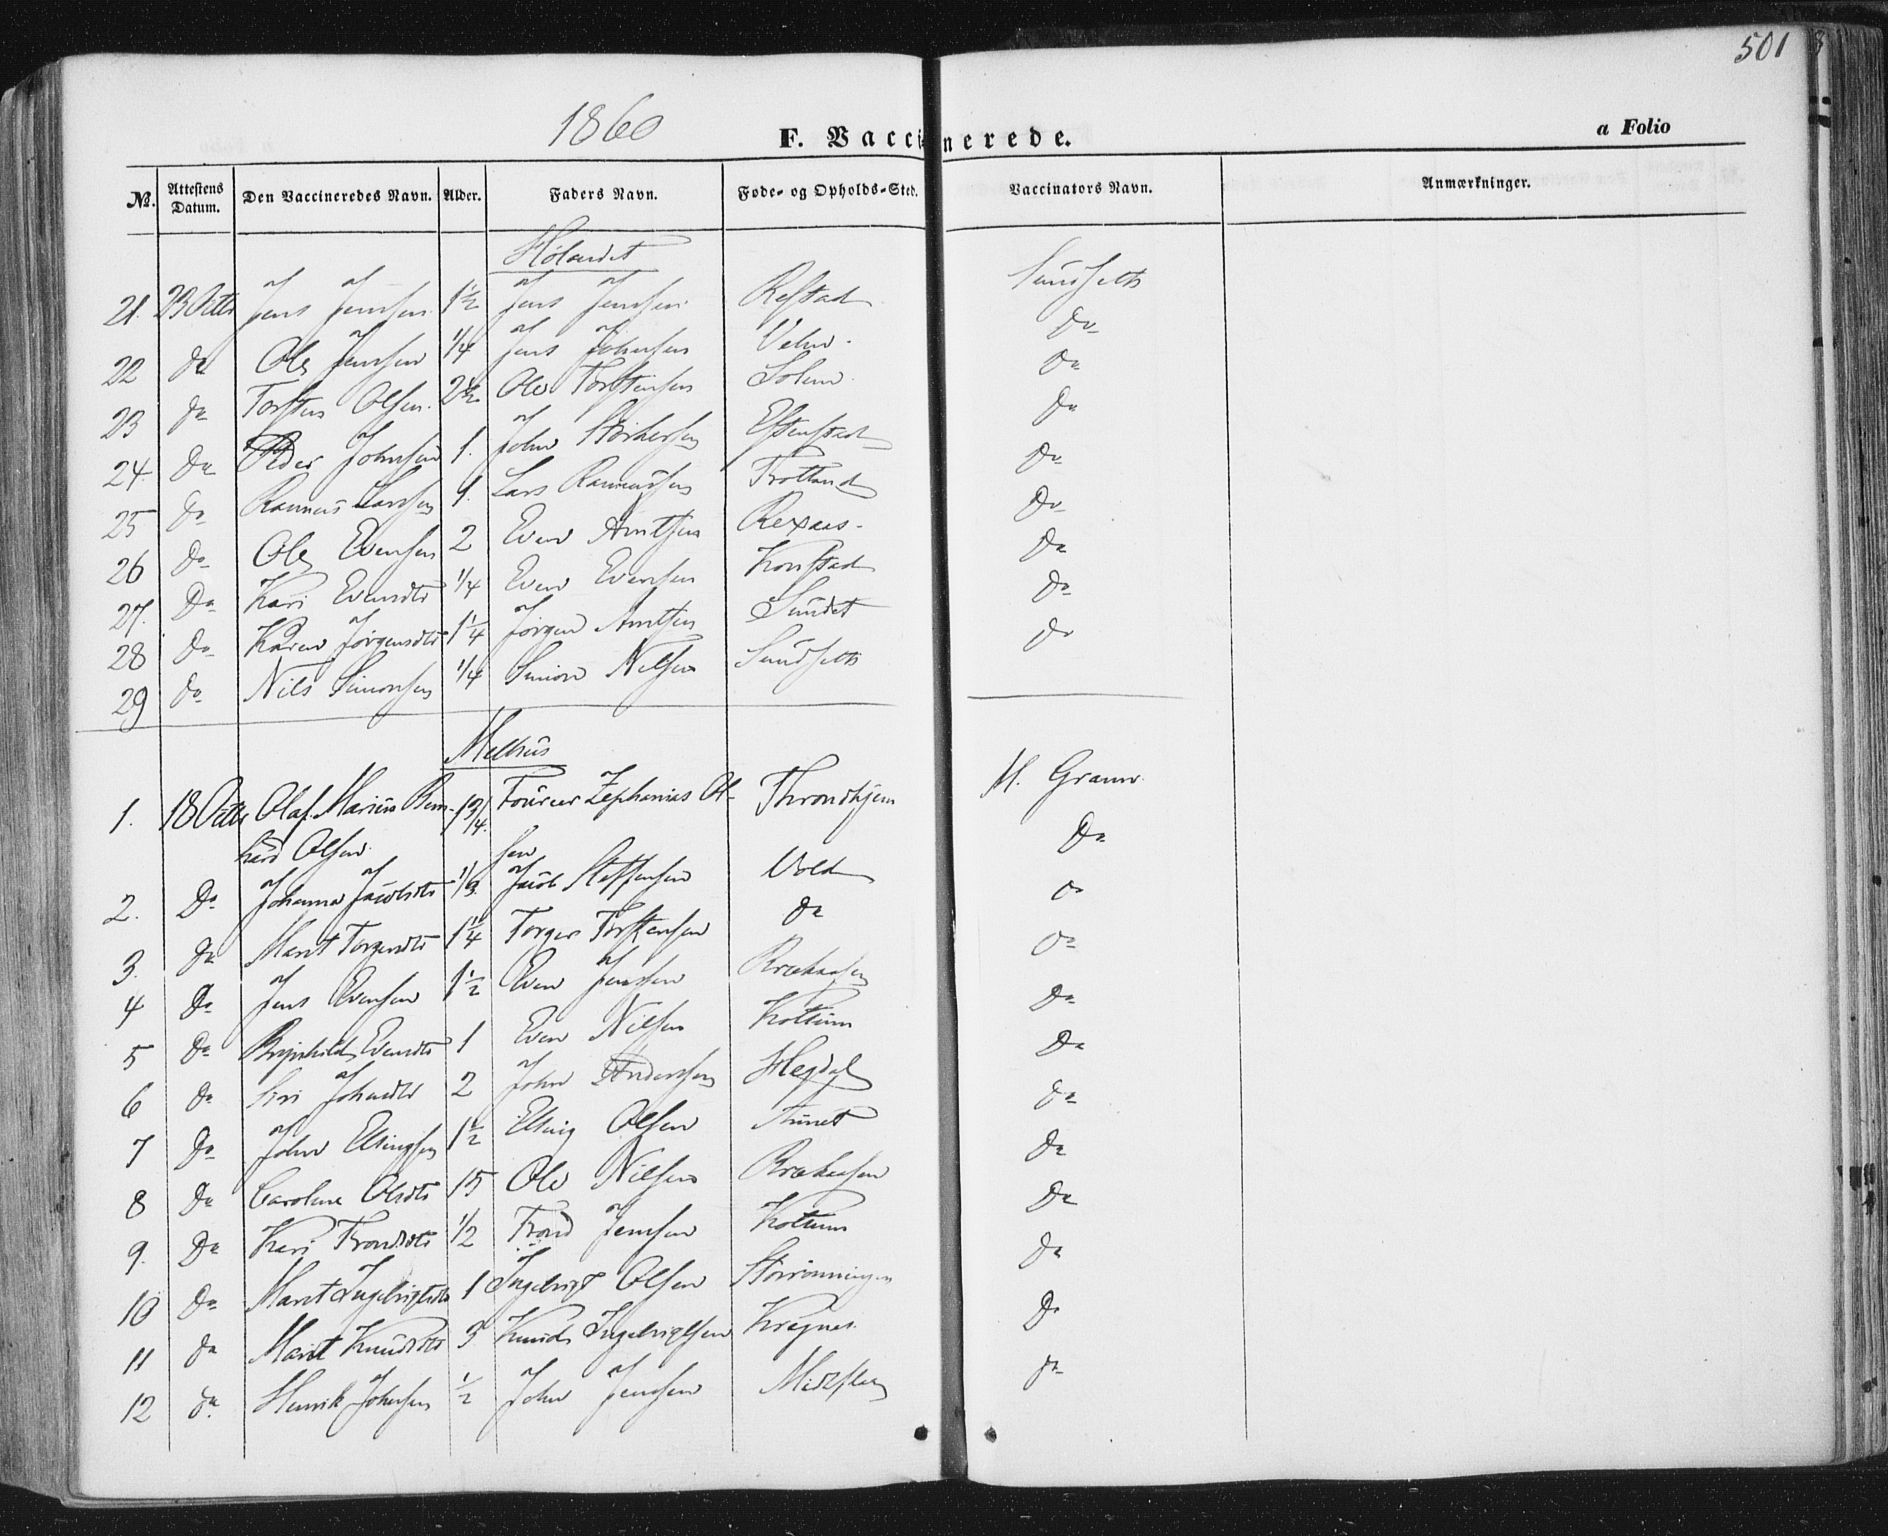 501
1860
F. Vaccinerede.
a Folio
No. Attestens Datum. Den Vaccineredes Navn. Alder. Faders Navn. Føde- og Opholds-Sted. Vaccinators Navn. Anmærkninger.
Hølandet
21. 23 Octbr Jens Jensen 1½ Jens Jensen Refstad Sundseth
22 do Ole Jensen ¼ Jens Johnsen do
23 do Torsten Olsen 2½ Ole Torstensen Solem do
24. do Peder Johnsen 1. John Størkersen Estenstad do
25 do Rasmus Larsen 1. Lars Rasmussen do
26 do Ole Evensen 2 Even Arntsen Rexaas do
27. do Kari Evensdtr ¼ Even Evensen Konstad do
28 do Karen Jørgensdtr 1¼ Jørgen Arntsen Sundet do
29 do Nils Simonsen ¼ Simon Nilsen Sundseth do
Melhus
1. 18 Octbr Olaf Marius Bern- 1¾ Fourer Zephanias Ol- Throndhjem M. Gram
hard Olsen sen
2. do Johanna Jacobsdtr ⅓ Jacob Steffensen Vold do
3. do Marit Torgersdtr 1¼ Torger Torstensen do do
4 do Jens Evensen 1½ Even Jensen Brækaasen do
5 do Brynhild Evensdtr 1 Even Nilsen Kottum do
6 do Siri Johnsdtr 2 John Anderssen Hegdal do
7 do John Ellingsen 1½ Elling Olsen Tunet do
8 do Caroline Olsdtr 15 Ole Nilsen Brækaasen do
9. do Kari Trondsdtr ½ Trond Jensen Kottum do
10 do Marit Ingebrigtsdtr 1 Ingebrigt Olsen Storrønningen do
11 do Marit Knudsdtr 3 Knud Ingebrigtsen Krægnes do
12 do Henrik Johnsen ½ John Jensen do